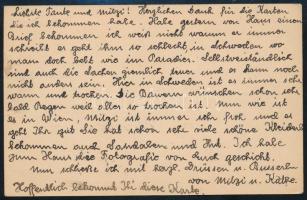 Liebste Tante und Mitzi! Herzlichen Dank für die Karten
die ich bekommen habe. Habe gestern von Hans einen
Brief bekommen ich weiß nicht warum er immer
schreibt es geht ihm so schlecht, in Schweden wo
man doch lebt wie im Paradies. Selbstverständlich
sind auch die Sachen ziemlich teuer und es kann noch
nicht anders sein. Hier in Schweden ist es immer sehr
warm und trocken. Die Bauern wünschen schon sehr
bald Regen weil alles so trocken ist. Nun wie ist
es in Wien, Mitzi ist immer sehr froh und es
geht ihr gut Sie hat schon sehr viele schöne Kleider
bekommen auch Sandalen und Hut. Ich habe
zum Hans die Fotografie von Euch geschickt.
Nun schließe ich mit herzl. Grüssen u. Busserln
von Mitzi u. Käthe.
Hoffentlich bekommt Ihr diese Karte.